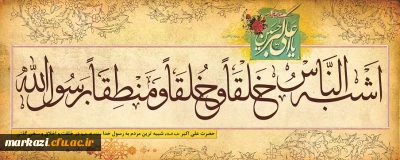 یا علی اکبر حسین
اشبه الناس خلقاً و خلقاً و منطقاً برسول الله
حضرت علی اکبر شبیه ترین مردم به رسول خدا
markazi.cfu.ac.ir